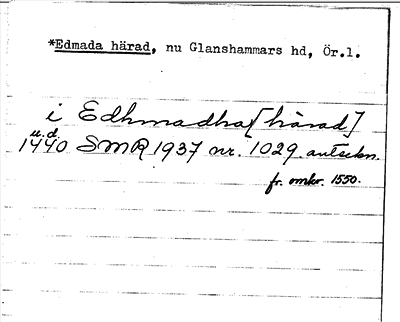 *Edmada härad, nu Glanshammars hd, Ör.l.
i Edhmadha [härad]
u.d.
1440 SMR 1937 nr. 1029. anteckn.
fr. omkr. 1550.